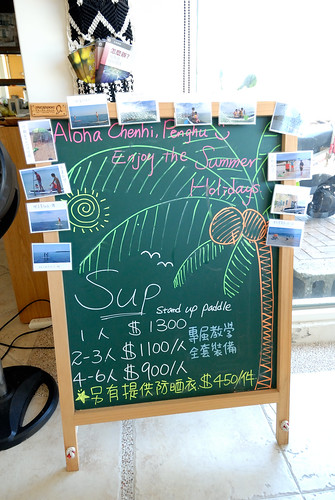 Aloha Chenhi, Penghu
Enjoy the Summer
Holidays
Sup
Stand up paddle
1人 $1300
2-3人 $1100/人
4-6人 $900/人
專屬教學
全套裝備
★另有提供防曬衣 $450/件